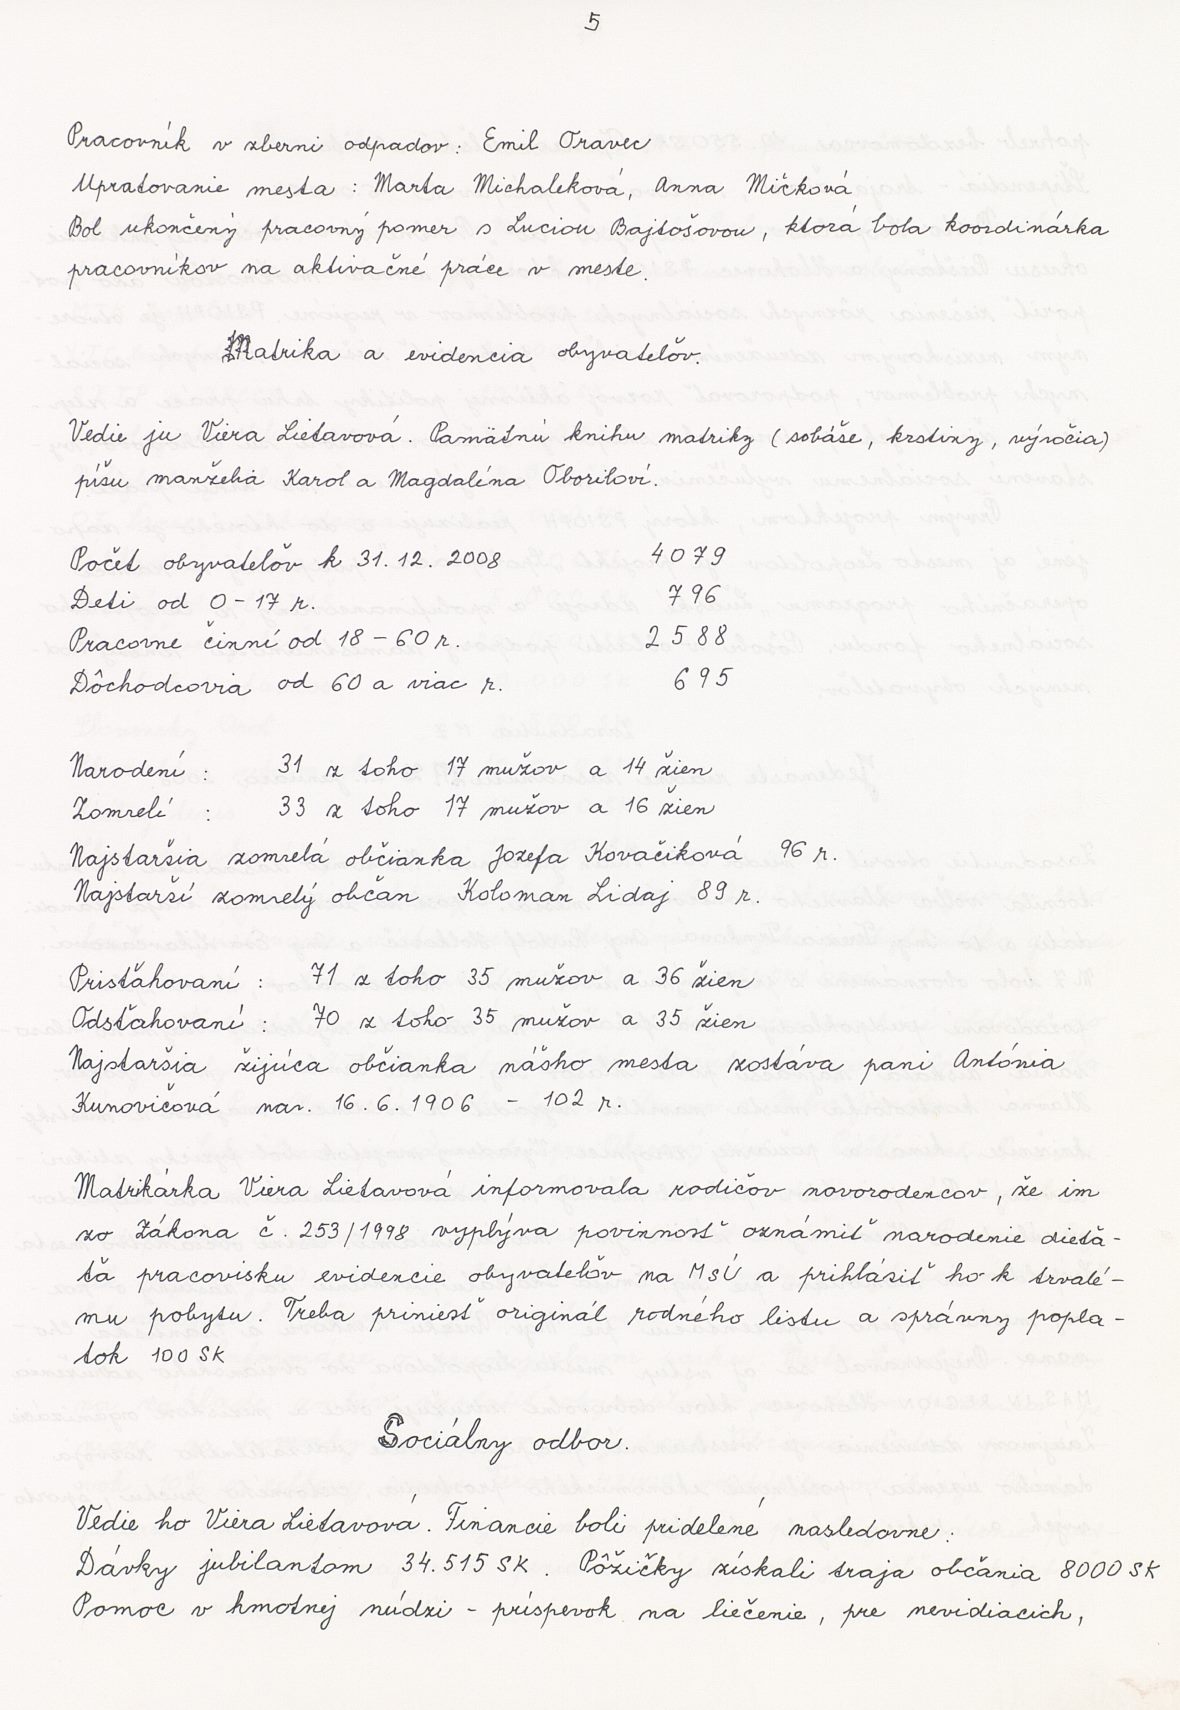 5
Pracovník v zberni odpadov: Emil Oravec
Upratovanie mesta : Marta Michaleková, Anna Mičková
Bol ukončený pracovný pomer s Luciou Bajtošovou, ktorá bola koordinárka
pracovníkov na aktivačné práce v meste.
Matrika a evidencia obyvateľov.
Vedie ju Viera Lietavová. Pamätnú knihu matriky (sobáše, krstiny, výročia)
píšu manželia Karol a Magdaléna Oboriloví.
Počet obyvateľov k 31.12.2008 4079
Deti od 0-17 r. 796
Pracovne činní od 18-60 r. 2588
Dôchodcovia od 60 a viac r. 695
Narodení : 31 z toho 17 mužov a 14 žien
Zomrelí : 33 z toho 17 mužov a 16 žien
Najstaršia zomrelá občianka Jozefa Kovačiková 96 r.
Najstarší zomrelý občan Koloman Lidaj 89 r.
Prisťahovaní : 71 z toho 35 mužov a 36 žien
Odsťahovaní : 70 z toho 35 mužov a 35 žien
Najstaršia žijúca občianka nášho mesta zostáva pani Antónia
Kunovičová nar. 16.6.1906 - 102 r.
Matrikárka Viera Lietavová informovala rodičov novorodencov, že im
zo Zákona č. 253/1998 vyplýva povinnosť oznámiť narodenie dieťa-
ťa pracovisku evidencie obyvateľov na MsÚ a prihlásiť ho k trvalé-
mu pobytu. Treba priniesť originál rodného listu a správny popla-
tok 100 SK
Sociálny odbor.
Vedie ho Viera Lietavová. Financie boli pridelené nasledovne:
Dávky jubilantom 34.515 SK. Pôžičky získali traja občania 8000 SK
Pomoc v hmotnej núdzi - príspevok na liečenie, pre nevidiacich,